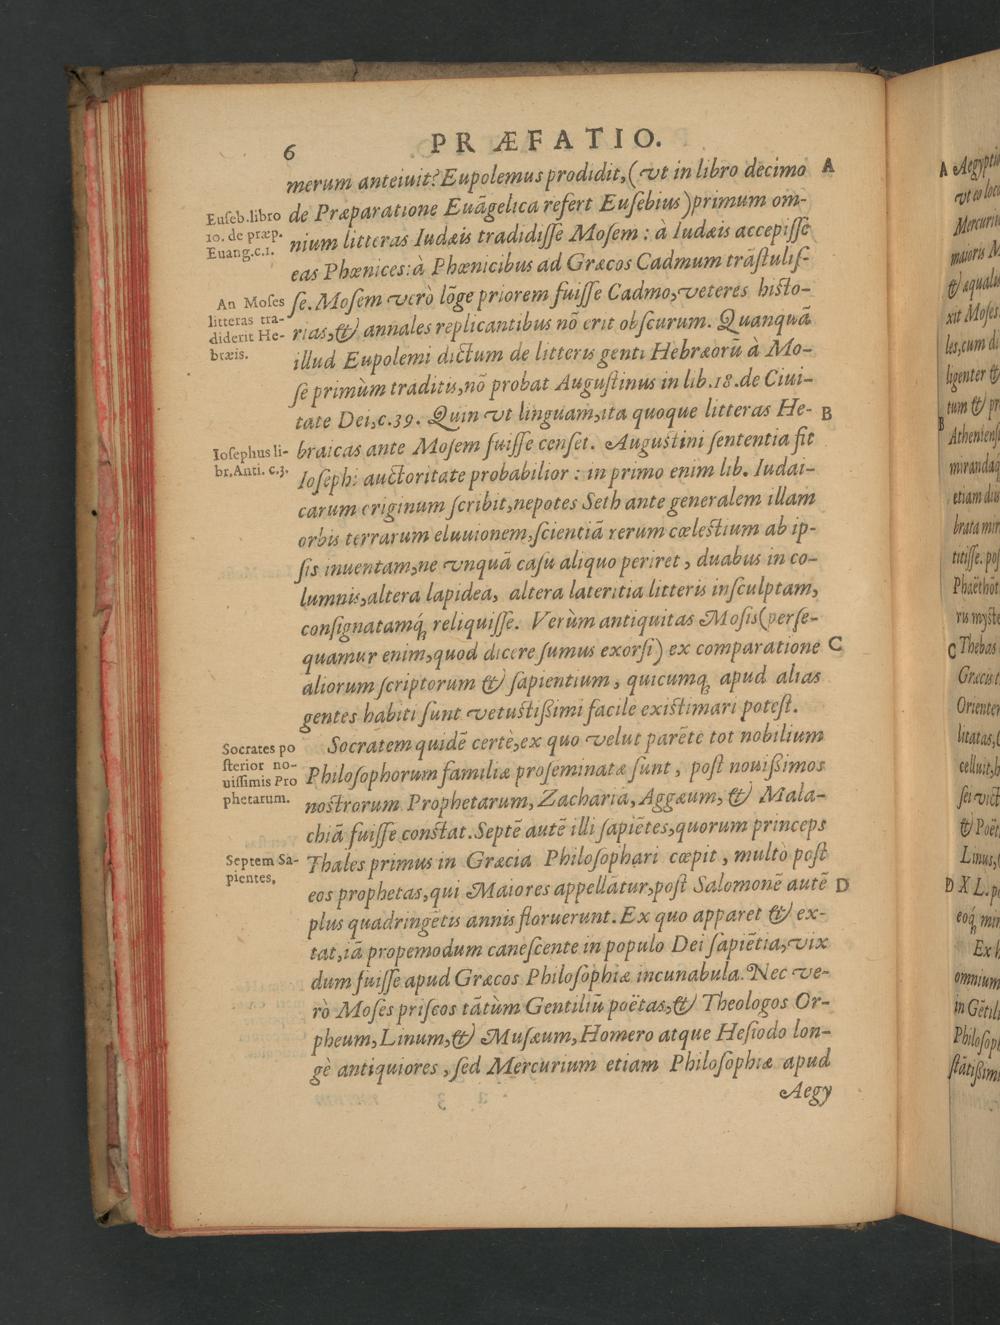 6
PRÆFATIO.
merum anteiuit? Eupolemus prodidit, (vt in libro decimo
A
de Præparatione Euãgelica refert Eusebius) primum om-
nium litteras Iudæis tradidisse Mosem: à Iudæis accepisse
eas Phœnices: à Phœnicibus ad Græcos Cadmum trãstulis-
se. Mosem verò lõge priorem fuisse Cadmo, veteres histo-
rias, & annales replicantibus nõ erit obscurum. Quanquã
illud Eupolemi dictum de litteris genti Hebræorũ à Mo-
se primùm traditis, nõ probat Augustinus in lib. 18. de Ciui-
tate Dei, c. 39. Quin vt linguam, ita quoque litteras He-
B
braicas ante Mosem fuisse censet. Augustini sententia fit
Iosephi auctoritate probabilior: in primo enim lib. Iudai-
carum originum scribit, nepotes Seth ante generalem illam
orbis terrarum eluuionem, scientiã rerum cœlestium ab ip-
sis inuentam, ne vnquã casu aliquo periret, duabus in co-
lumnis, altera lapidea, altera lateritia litteris insculptam,
consignatamq́ reliquisse. Verùm antiquitas Mosis (perse-
quamur enim, quod dicere sumus exorsi) ex comparatione
C
aliorum scriptorum & sapientium, quicumq apud alias
gentes habiti sunt vetustissimi facile existimari potest.
Socratem quidẽ certè, ex quo velut parẽte tot nobilium
Philosophorum familiæ proseminatæ sunt, post nouissimos
nostrorum Prophetarum, Zachariã, Aggæum, & Mala-
chiã fuisse constat. Septẽ autẽ illi sapiẽtes, quorum princeps
Thales primus in Græcia Philosophari cœpit, multò post
eos prophetas, qui Maiores appellãtur, post Salomonẽ autẽ
D
plus quadringẽtis annis floruerunt. Ex quo apparet & ex-
tat, iã propemodum canescente in populo Dei sapiẽtia, vix
dum fuisse apud Græcos Philosophiæ incunabula. Nec ve-
rò Moses priscos tãtùm Gentiliũ poëtas, & Theologos Or-
pheum, Linum, & Musæum, Homero atque Hesiodo lon-
gè antiquiores, sed Mercurium etiam Philosophiæ apud
Aegy
Euseb. libro
10. de præp.
Euang. c. 1.
An Moses
litteras tra-
diderit He-
bræis.
Iosephus li-
br. Anti. c. 3.
Socrates po
sterior no-
uissimis Pro
phetarum.
Septem Sa-
pientes,
A
B
C
D